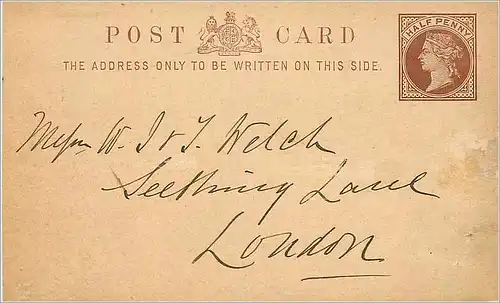 POST CARD
THE ADDRESS ONLY TO BE WRITTEN ON THIS SIDE.
HALF PENNY
Messrs W. J & T. Welch
Seething Lane
London